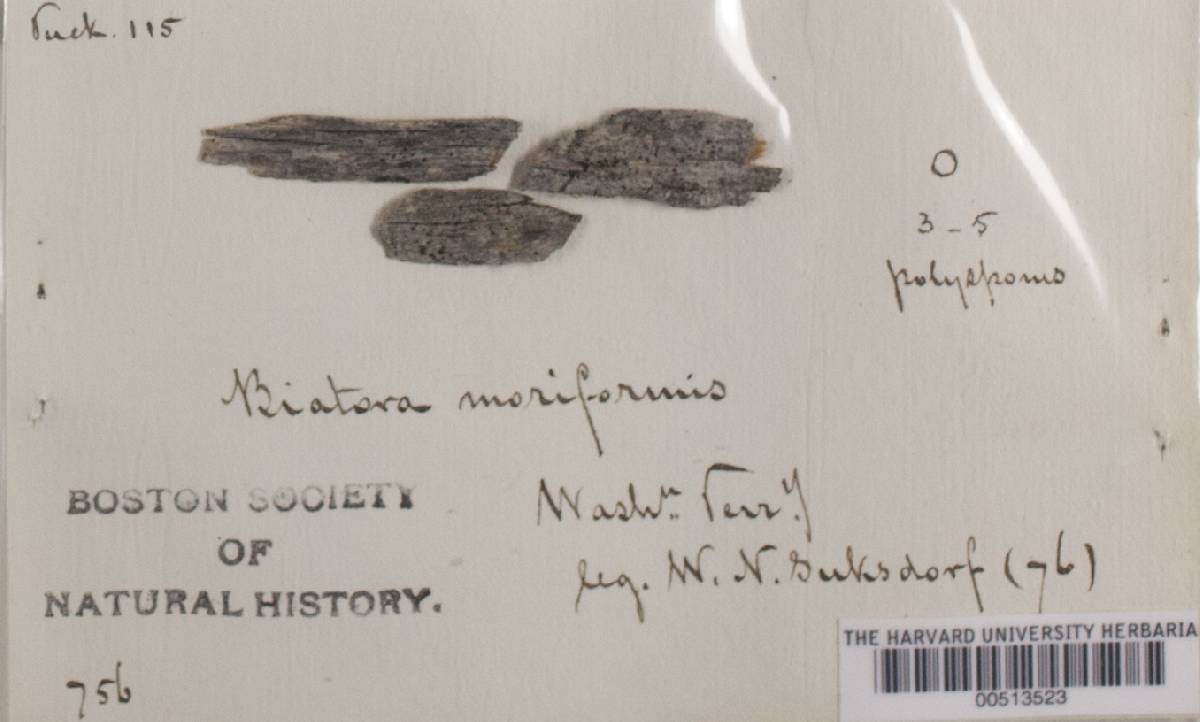 Tuck. 115
O
3-5
polysporus
Biatora moriformis
BOSTON SOCIETY
OF
NATURAL HISTORY.
Washn. Terry.
leg. W. N. Suksdorf (76)
756
THE HARVARD UNIVERSITY HERBARIA
00513523